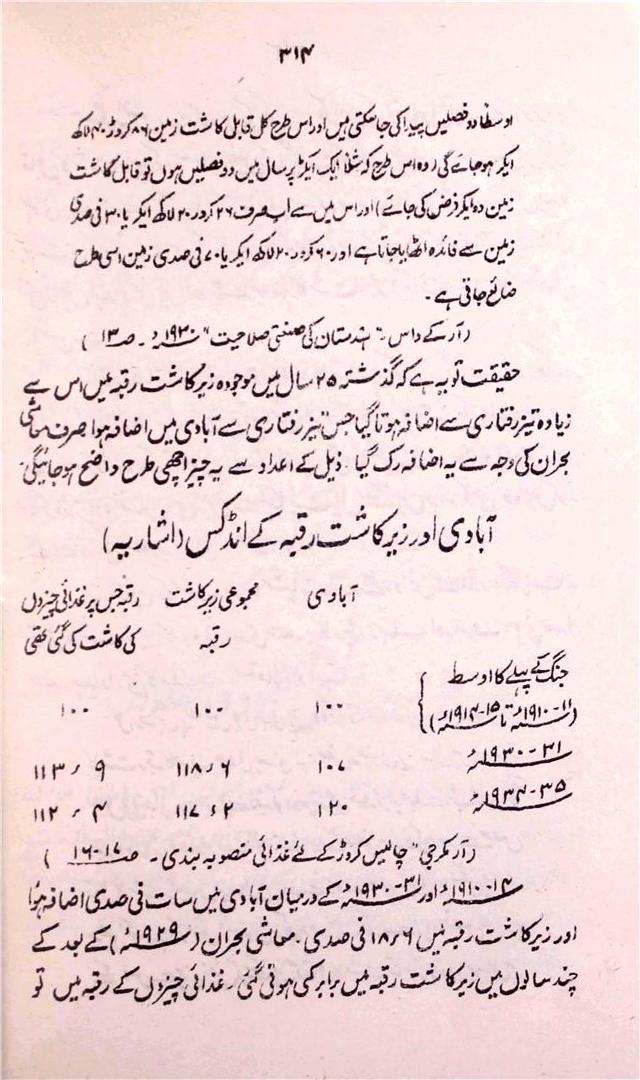 ۳۱۴
اوسطاً دو فصلیں پیدا کی جا سکتی ہیں اور اس طرح کل قابل کاشت زمین ۸۶ کروڑ ۴۰ لاکھ
ایکڑ ہو جائے گی (وہ اس طرح کہ مثلاً ایک ایکڑ پر سال میں دو فصلیں ہوں تو قابل کاشت
زمین دو ایکڑ فرض کی جائے) اور اس میں سے اب صرف ۲۶ کروڑ ۲۰ لاکھ ایکڑ یا ۳۰ فی صدی
زمین سے فائدہ اٹھایا جاتا ہے اور ۶۰ کروڑ ۲۰ لاکھ ایکڑ یا ۷۰ فی صدی زمین اسی طرح
ضائع جاتی ہے۔
(آر کے داس۔ "ہندستان کی صنعتی صلاحیت" ۱۹۳۰ء۔ ص ۱۳)
حقیقت تو یہ ہے کہ گذشتہ ۲۵ سال میں موجودہ زیر کاشت رقبہ میں اس سے
زیادہ تیز رفتاری سے اضافہ ہوتا گیا جس تیز رفتاری سے آبادی میں اضافہ ہوا صرف معاشی
بحران کی وجہ سے یہ اضافہ رک گیا۔ ذیل کے اعداد سے یہ چیز اچھی طرح واضح ہو جائیگی۔
آبادی اور زیر کاشت رقبہ کے انڈکس (اشاریہ)
آبادی مجموعی زیر کاشت رقبہ جس پر غذائی چیزوں
رقبہ کی کاشت کی گئی تھی
جنگ کے پہلے کا اوسط
(۱۱-۱۹۱۰ء تا ۱۵-۱۹۱۴ء) ۱۰۰ ۱۰۰ ۱۰۰
۳۱-۱۹۳۰ء ۱۰۷ ۱۱۸٫۶ ۱۱۳٫۹
۳۵-۱۹۳۴ء ۱۲۰ ۱۱۷٫۲ ۱۱۲٫۴
(آر مکرجی "چالیس کروڑ کے لئے غذائی منصوبہ بندی۔ ص ۱۷-۱۶)
۱۴-۱۹۱۰ء اور ۳۱-۱۹۳۰ء کے درمیان آبادی میں سات فی صدی اضافہ ہوا
اور زیر کاشت رقبہ میں ۱۸٫۶ فی صدی۔ معاشی بحران (۱۹۲۹ء) کے بعد کے
چند سالوں میں زیر کاشت رقبہ میں برابر کمی ہوتی گئی۔ غذائی چیزوں کے رقبہ میں تو